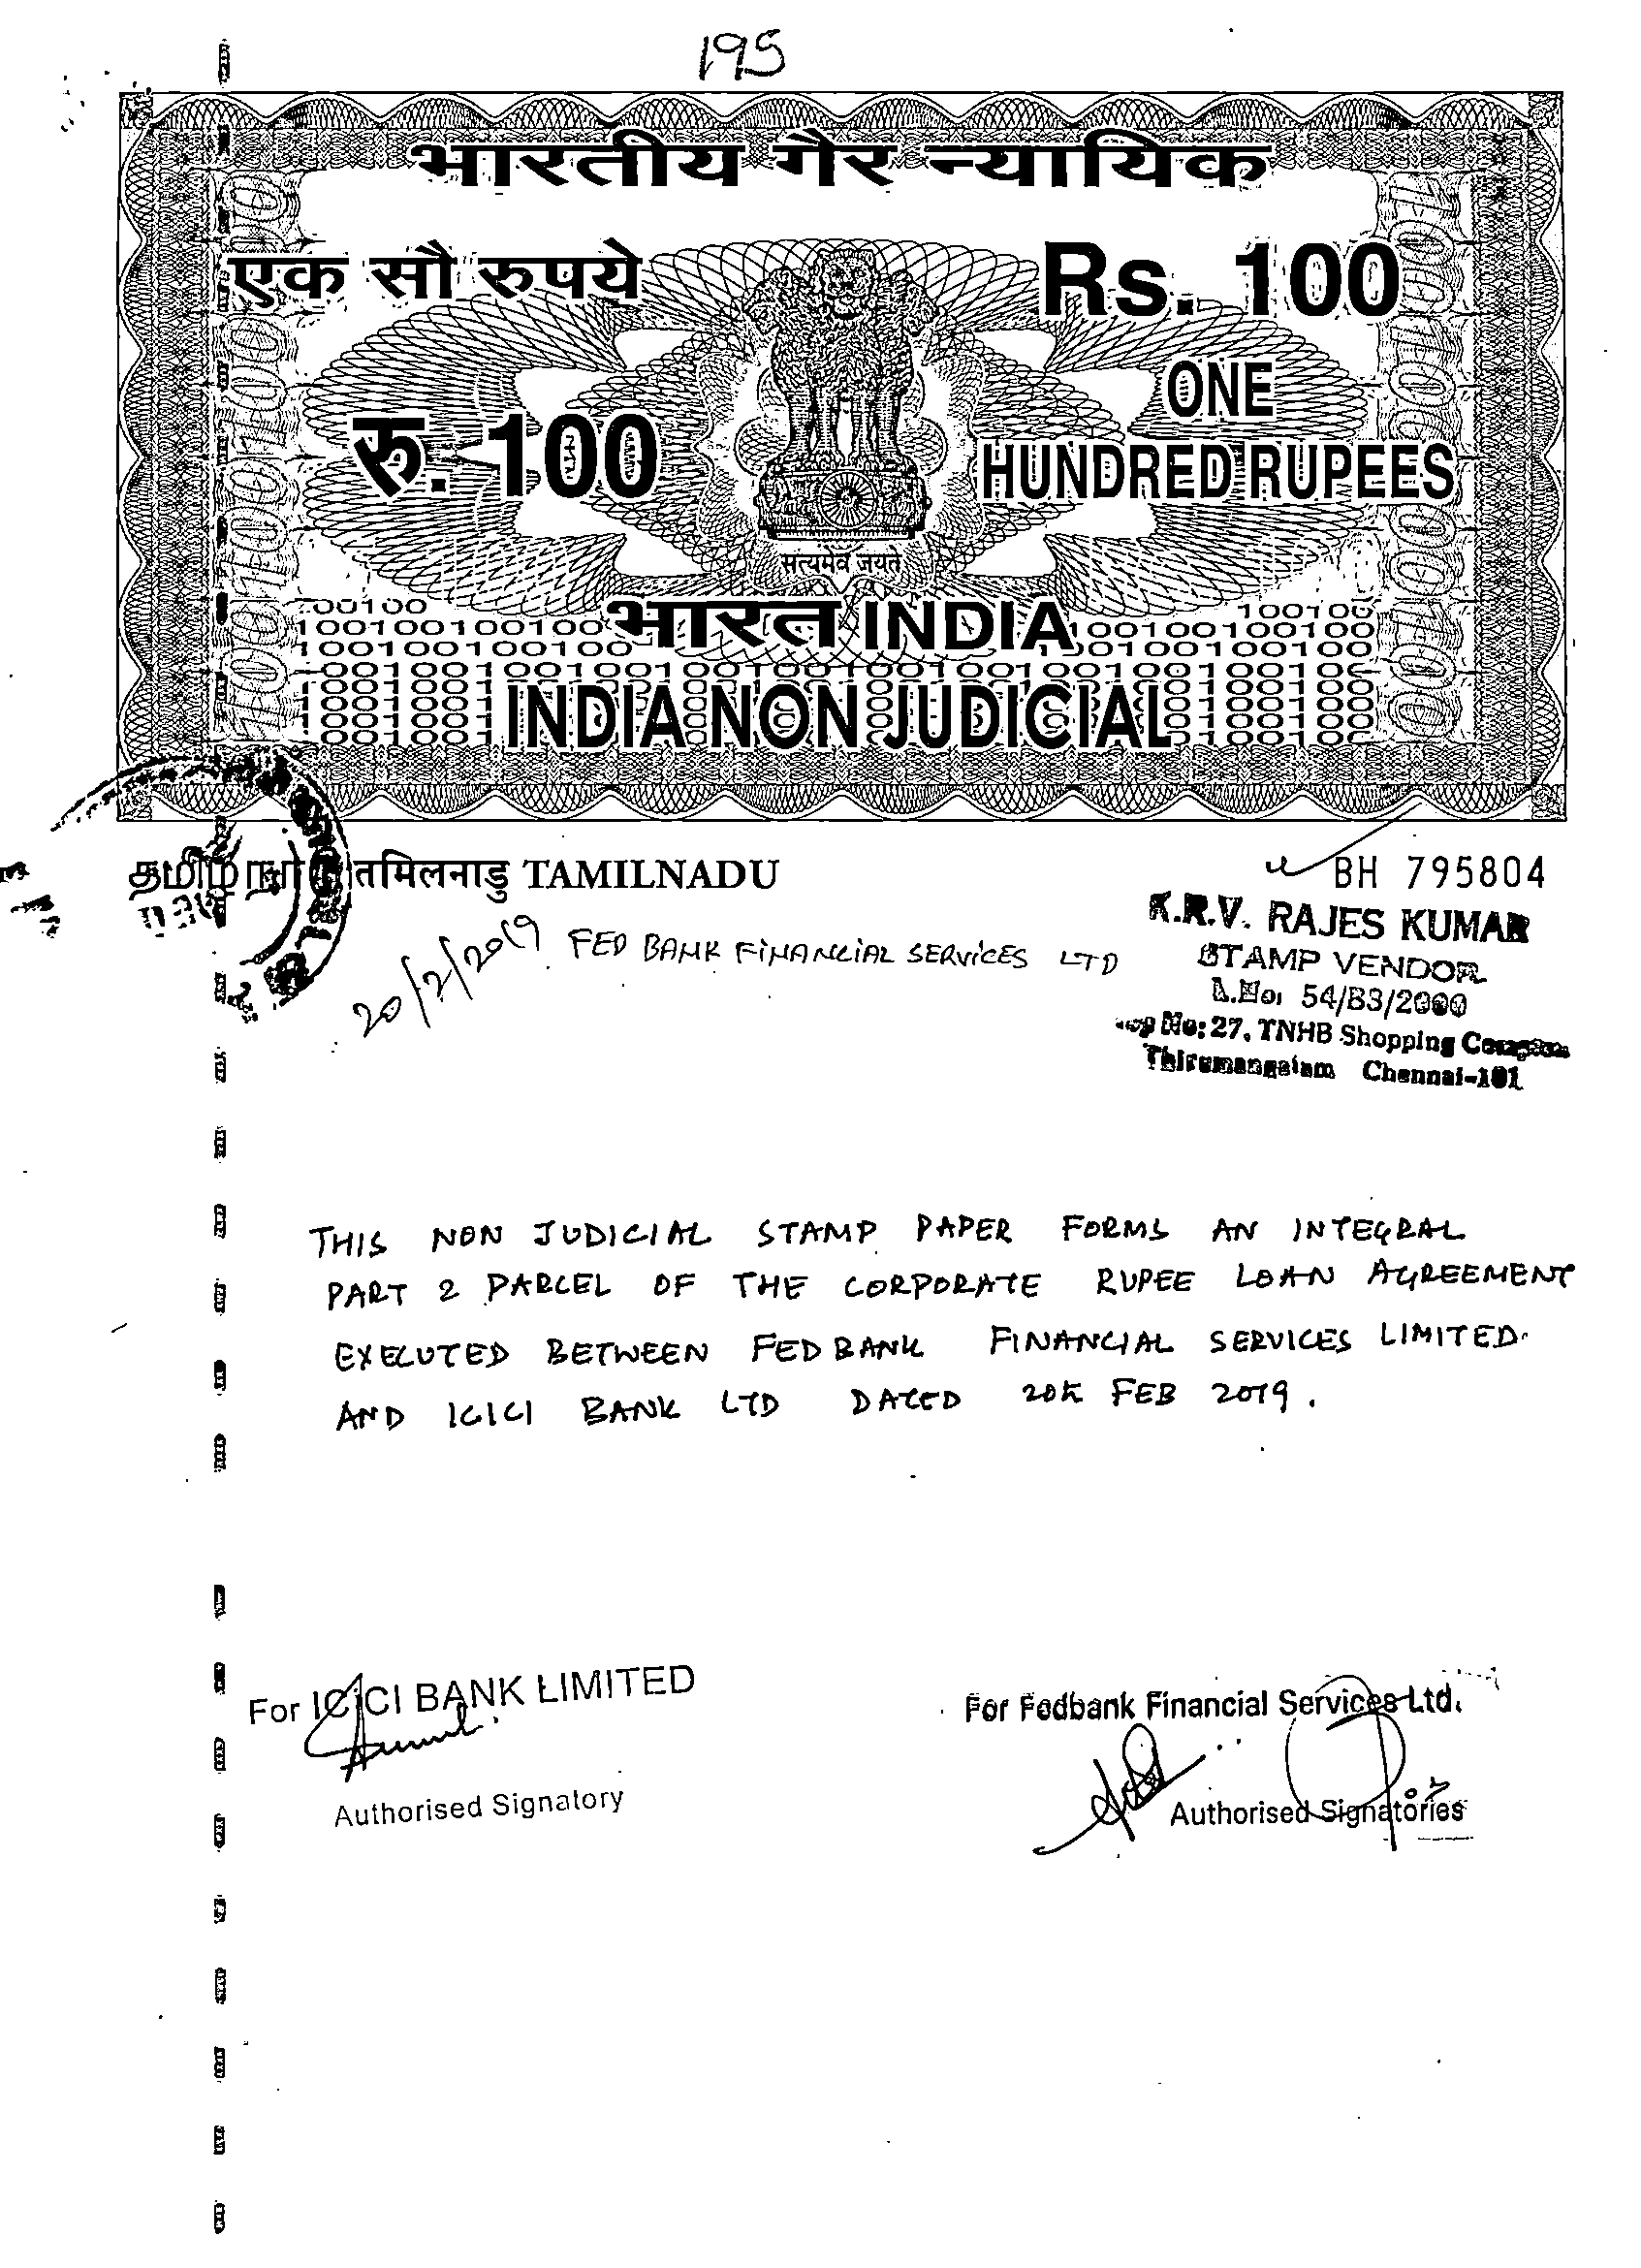 195
भारतीय गैर न्यायिक
एक सौ रुपये
Rs. 100
रु. 100
ONE
HUNDRED RUPEES
सत्यमेव जयते
भारत INDIA
INDIA NON JUDICIAL
தமிழ்நாடு तमिलनाडु TAMILNADU
BH 795804
20/2/2019 FED BANK FINANCIAL SERVICES LTD
K.R.V. RAJES KUMAR
STAMP VENDOR
L.No: 54/B3/2000
No: 27, TNHB Shopping Complex
Thirumangalam Chennai-101
THIS NON JUDICIAL STAMP PAPER FORMS AN INTEGRAL
PART & PARCEL OF THE CORPORATE RUPEE LOAN AGREEMENT
EXECUTED BETWEEN FEDBANK FINANCIAL SERVICES LIMITED.
AND ICICI BANK LTD DATED 20th FEB 2019.
For ICICI BANK LIMITED
Authorised Signatory
For Fedbank Financial Services Ltd.
Authorised Signatories